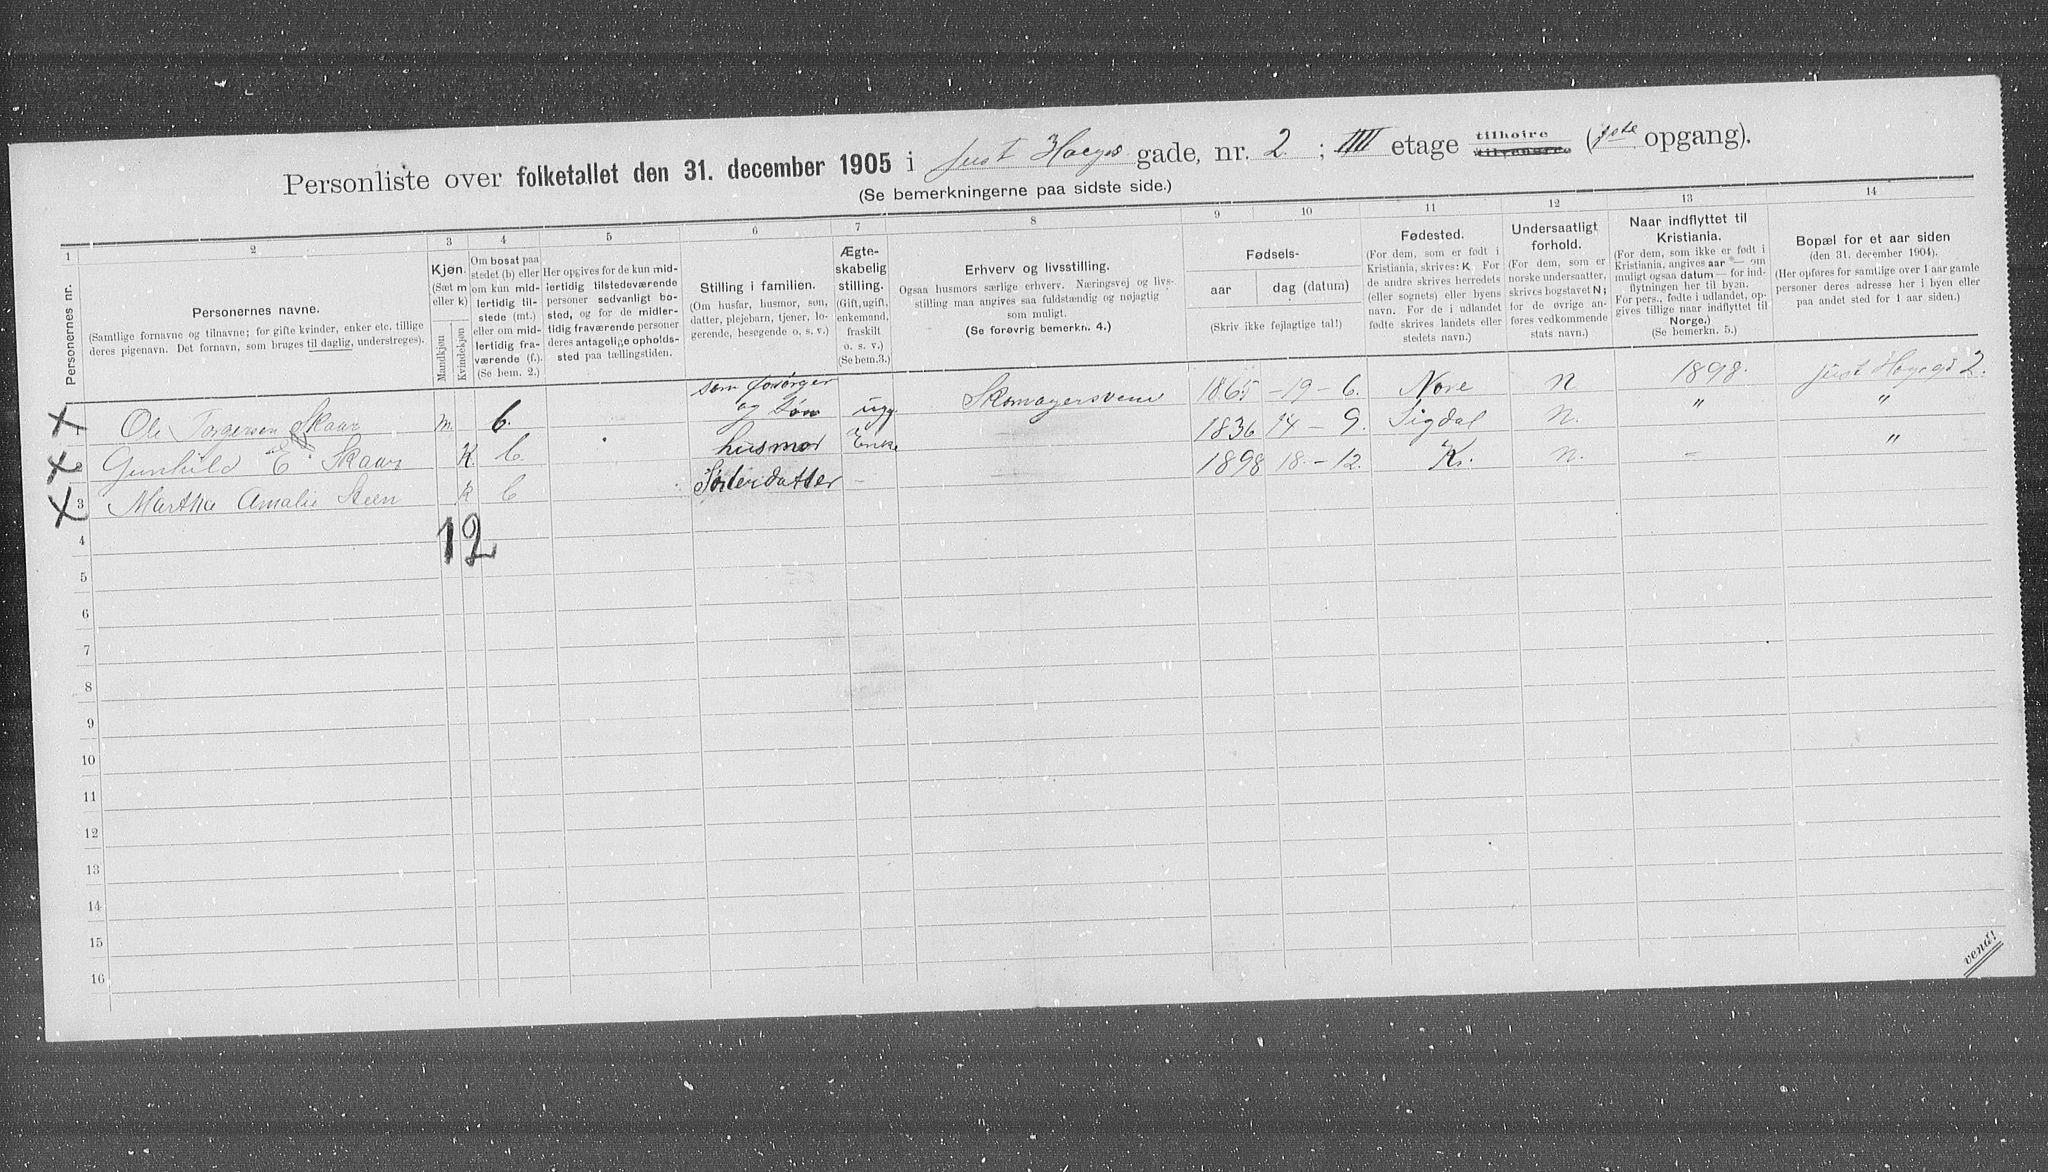 Personliste over folketallet den 31. december 1905 i Just Haegs gade, nr. 2 ; IIII etage tilhoire tilvenstre (1ste opgang).
(Se bemerkningerne paa sidste side.)
1 2 3 4 5 6 7 8 9 10 11 12 13 14
Personernes nr.
Personernes navne.
(Samtlige fornavne og tilnavne; for gifte kvinder, enker etc. tillige
deres pigenavn. Det fornavn, som bruges til daglig, understreges).
Kjøn.
(Sæt m
eller k)
Mandkjøn
Kvindekjøn
Om bosat paa
stedet (b) eller
om kun mid-
lertidig til-
stede (mt.)
eller om mid-
lertidig fra-
værende (f.).
(Se bem. 2.)
Her opgives for de kun mid-
lertidig tilstedeværende
personer sedvanligt bo-
sted, og for de midler-
tidig fraværende personer
deres antagelige opholds-
sted paa tællingstiden.
Stilling i familien.
(Om husfar, husmor, søn,
datter, plejebarn, tjener, lo-
gerende, besøgende o. s. v.)
Ægte-
skabelig
stilling.
(Gift, ugift,
enkemand,
fraskilt
o. s. v.)
(Se bem.3.)
Erhverv og livsstilling.
Ogsaa husmors særlige erhverv. Næringsvej og livs-
stilling maa angives saa fuldstændig og nøjagtig
som muligt.
(Se forøvrig bemerkn. 4.)
Fødsels-
aar dag (datum)
(Skriv ikke fejlagtige tal!)
Fødested.
(For dem, som er født i
Kristiania, skrives: K. For
de andre skrives herredets
(eller sognets) eller byens
navn. For de i udlandet
fødte skrives landets eller
stedets navn.)
Undersaatligt
forhold.
(For dem, som er
norske undersaatter,
skrives bogstavet N;
for de øvrige an-
føres vedkommende
stats navn.)
Naar indflyttet til
Kristiania.
(For dem, som ikke er født i
Kristiania, angives aar — om
muligt ogsaa datum — for ind-
flytningen her til byen.
For pers., fødte i udlandet, op-
gives tillige naar indflyttet til
Norge.)
(Se bemerkn. 5.)
Bopæl for et aar siden
(den 31. december 1904).
(Her opføres for samtlige over 1 aar gamle
personer deres adresse her i byen eller
paa andet sted for 1 aar siden.)
X 1 Ole Torgersen Skaar m. b. som forsørger og Søn ugg. Skomagersvend 1865 -19-6. Nore n 1898. Just Hegegd 2.
X 2 Gunhild E. Skaar K. b. husmor Enke 1836 14-9. Sigdal n. " "
X 3 Martha Amalie Steen k b Søsterdatter - 1898 18.-12. K. n. - "
12
4
5
6
7
8
9
10
11
12
13
14
15
16
vend!